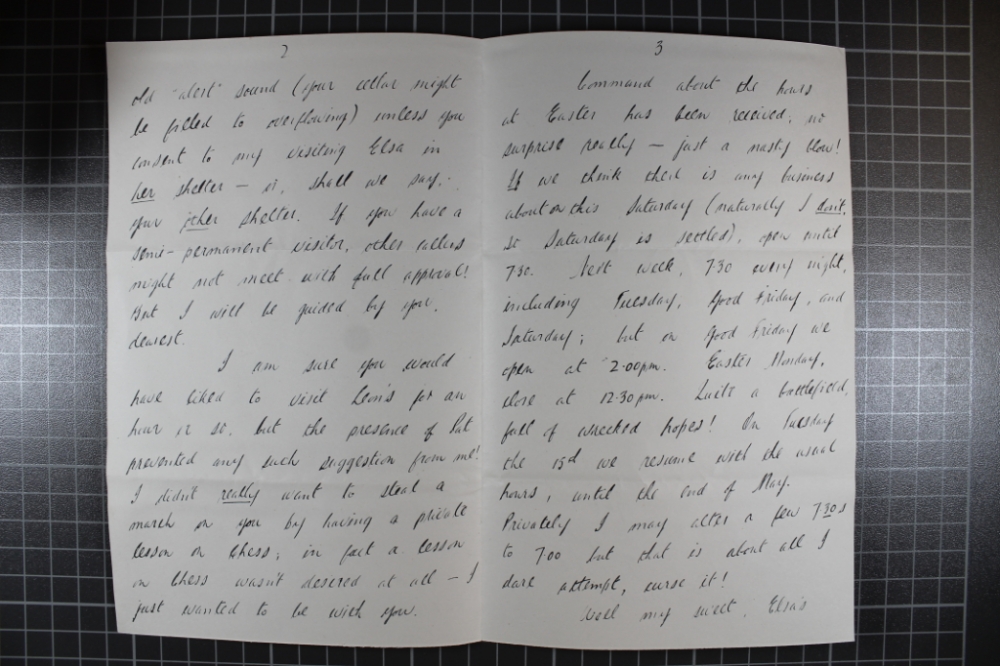 2
old "alert" sound (your cellar might
be filled to overflowing) unless you
consent to my visiting Elsa in
her shelter – or, shall we say,
your other shelter. If you have a
semi-permanent visitor, other callers
might not meet with full approval!
But I will be guided by you,
dearest.
I am sure you would
have liked to visit Leon's for an
hour or so, but the presence of Pat
prevented any such suggestion from me!
I didn't really want to steal a
march on you by having a private
lesson on Chess; in fact a lesson
on Chess wasn't desired at all – I
just wanted to be with you.
3
Command about the hours
at Easter has been received; no
surprise really – just a nasty blow!
If we think there is any business
about on this Saturday (naturally I don't,
so Saturday is settled), open until
7.30. Next week, 7.30 every night,
including Tuesday, Good Friday, and
Saturday; but on Good Friday we
open at 2.00pm. Easter Monday,
close at 12.30pm. Quite a battlefield,
full of wrecked hopes! On Tuesday
the 15th we resume with the usual
hours, until the end of May.
Privately I may alter a few 7.30s
to 7.00 but that is about all I
dare attempt, curse it!
Well my sweet, Elsa's